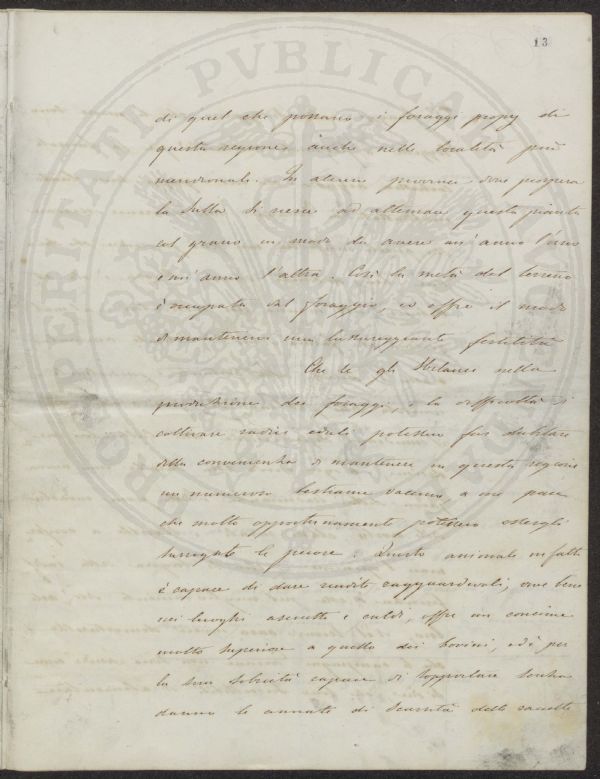 13
di quel che possano i foraggi proprj di
questa regione anche nelle località più
meridionali. In alcune provincie dove prospera
la Sulla si riesce ad alternare questa pianta
col grano in modo da avere un'anno l'uno
e un'anno l'altra. Così la metà del terreno
è occupata dal foraggio, e offre il modo
di mantenere una lussureggiante fertilità
Che se gli nella
produzione dei foraggi, e la difficoltà di
coltivare radici eduli potessero far dubitare
della convenienza di mantenere in questa regione
un numeroso bestiame vaccino, a me pare
che molto opportunamente potessero essergli
surrogate le pecore. Questo animale infatti
è capace di dare rendite ragguardevoli, vive bene
nei luoghi asciutti e caldi, offre un concime
molto superiore a quello dei bovini, ed è per
la sua sobrietà capace di sopportare senza
danno le annate di scarsità delle raccolte
PROSPERITATI PVBLICAE